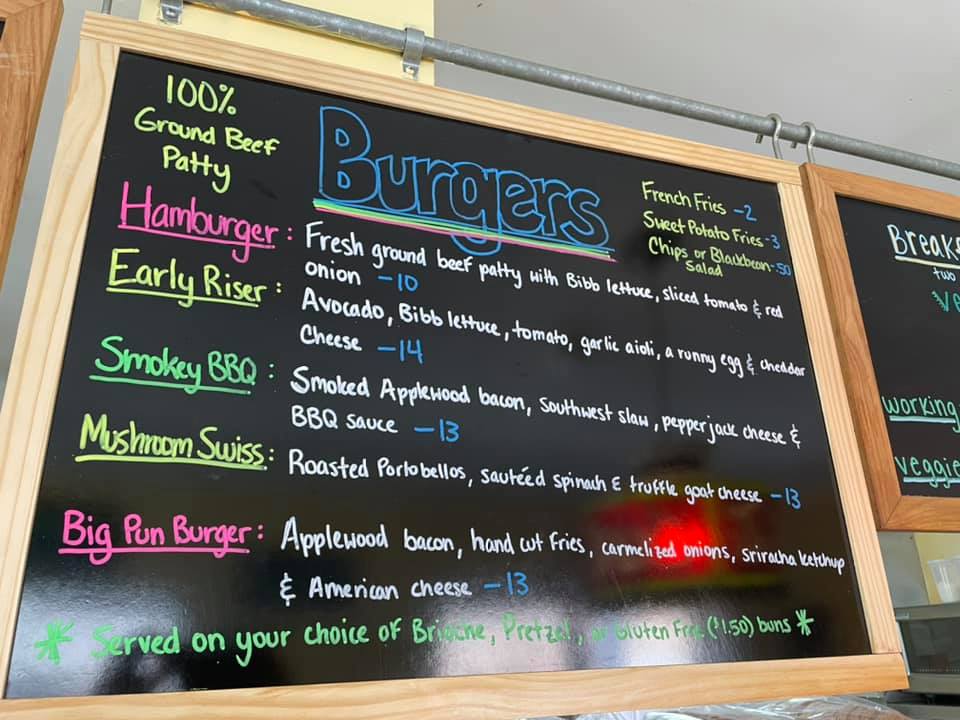 100%
Ground Beef
Patty
Burgers
French Fries -2
Sweet Potato Fries -3
Chips or Blackbean -.50
Salad
Hamburger: Fresh ground beef patty with Bibb lettuce, sliced tomato & red
onion -10
Early Riser: Avocado, Bibb lettuce, tomato, garlic aioli, a runny egg & cheddar
Cheese -14
Smokey BBQ: Smoked Applewood bacon, Southwest slaw, pepper jack cheese &
BBQ sauce -13
Mushroom Swiss: Roasted Portobellos, sautéed spinach & truffle goat cheese -13
Big Pun Burger: Applewood bacon, hand cut fries, carmelized onions, sriracha ketchup
& American cheese -13
* Served on your choice of Brioche, Pretzel, or Gluten Free ($1.50) buns *
two
working
veggie